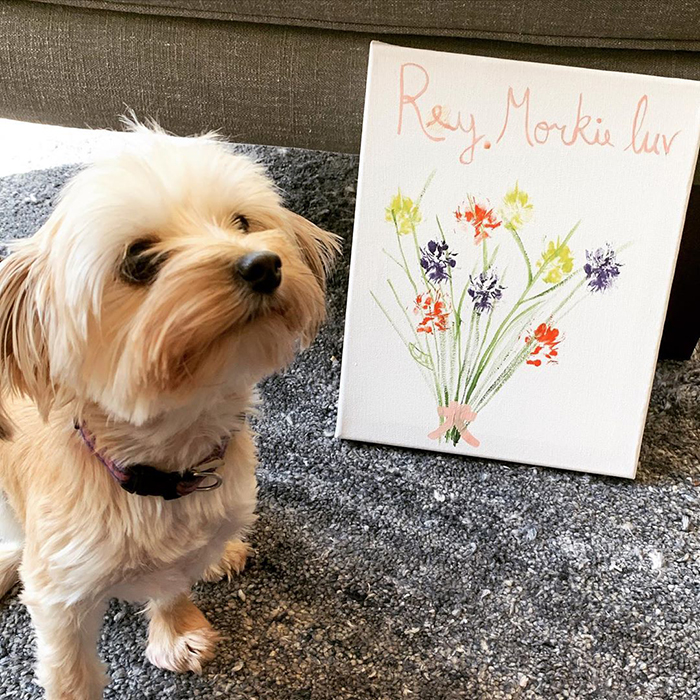 Rey. Morkie luv